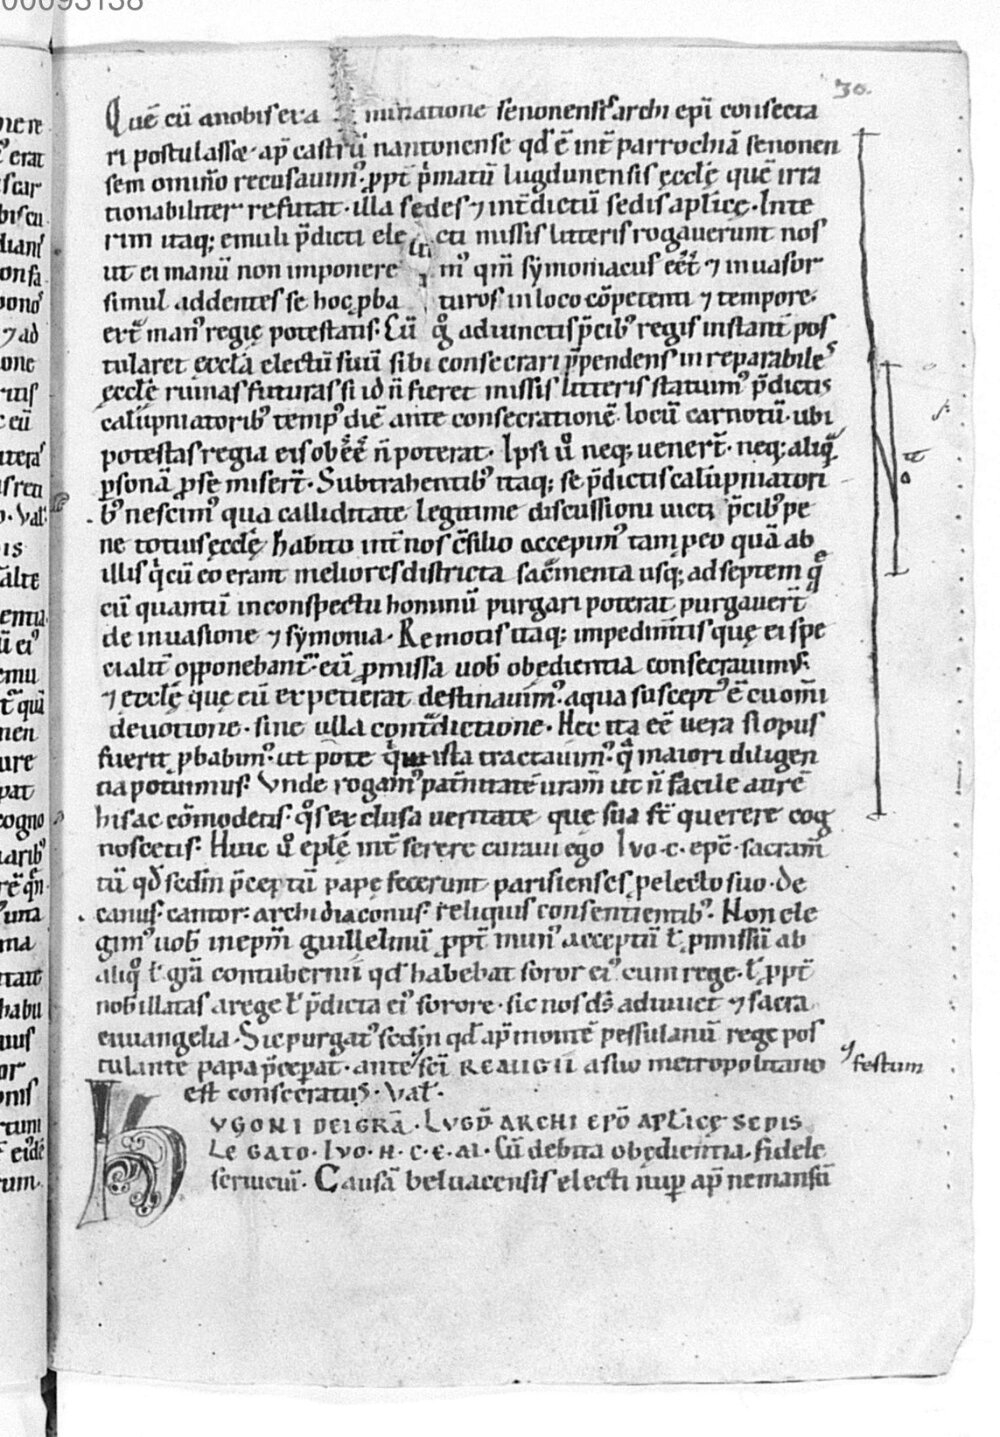 00093138
30.
Quē cū a nobis et a minatione senonensis archi epī consecra
ri postulasset ap̄ castrū nantonense qd̄ ē int̄ parrochiā senonen
sem omīno recusauimꝰ ꝓpt̄ p̄matū lugdunensis ęcclę quē irra
tionabiliter refutat. illa sedes ⁊ int̄dictū sedis aplicę. Inte
rim itaq; emuli p̄dicti ele cti missis litteris rogauerunt nos
ut ei manū non imponere mꝰ qm̄ symoniacus eēt ⁊ inuasor
simul addentes se hoc ꝓba turos in loco cōpetenti ⁊ tempore.
ert̄ manꝰ regię potestatis. Cū g̊ adiunctis p̄cibꝰ regis instant̄ pos
tularet ęcclā electū suū sibi consecrari ꝑpendens inreparabiles
ęcclę ruinas futuras si id n̄ fieret missis litteris statuimꝰ p̄dictis
calūpniatoribꝰ tempꝰ diē ante consecrationē. locū carnotū. ubi
potestas regia eis obēē n̄ poterat. Ipsi ů neq; uenert̄. neq; aliq̄
ꝑsonā ꝓ se misert̄. Subtrahentibꝰ itaq; se p̄dictis calūpniatori
bꝰ nescimꝰ qua calliditate legitime discussioni uicti p̄cibꝰ pe
ne totius ęcclę habito int̄ nos c̄silio accepimꝰ tam p eo quā ab
illis qͥ cū eo erant meliores districta sac̄menta usq; ad septem q̄
eū quantū in conspectu hominū purgari poterat purgauert̄
de inuasione ⁊ symonia. Remotis itaq; impedim̄tis quę ei spe
cialit̄ opponebant̄. eū ꝓmissa uob̄ obędientia consecrauimꝰ.
⁊ ęcclę quę eū expetierat destinauimꝰ. a qua susceptꝰ ē cū om̄i
deuotione. sine ulla cont̄dictione. Hec ita eē uera si opus
fuerit ꝓbabimꝰ. ut pote qͥ ista tractauimꝰ. q̄ maiori diligen
tia potuimus. Vnde rogamꝰ pat̄nitatē uram̄ ut n̄ facile aurē
his accōmodetis. qͦs exclusa ueritate que sua st̄ querere cog
noscetis. Huic ů eplę int̄serere curaui ego Ivo. c. epc̄. sacram̄
tū qd̄ sedm̄ p̄ceptū papę fecerunt parisienses ꝑ electo suo. de
canus. cantor. archidiaconus. reliquis consentientibꝰ. Non ele
gimꝰ uob̄ in epm̄ guillelmū ꝓpt̄ munꝰ acceptū ł ꝓmissū ab
aliqͦ ł grā contubernii qd̄ habebat soror eiꝰ cum rege. ł ꝓpt̄
nob̄ illatas a rege ł p̄dicta eiꝰ sorore. sic nos ds̄ adiuuet ⁊ sacra
euuangelia. Sic purgatꝰ sedm̄ qd̄ ap̄ montē pessulanū rege pos
tulante papa p̄ceperat. ante sc̄i REMIGII a suo metropolitano
festum
est consecratus. Val̄.
HVGONI DEI GRĀ. LVGD̄ ARCHI EPŌ APL̄ICĘ SEDIS
LEGATO. IVO. H. C. E. AI. Cū debita obędientia. fidele
seruiciū. Causā beluacensis electi nuꝑ ap̄ nemansū